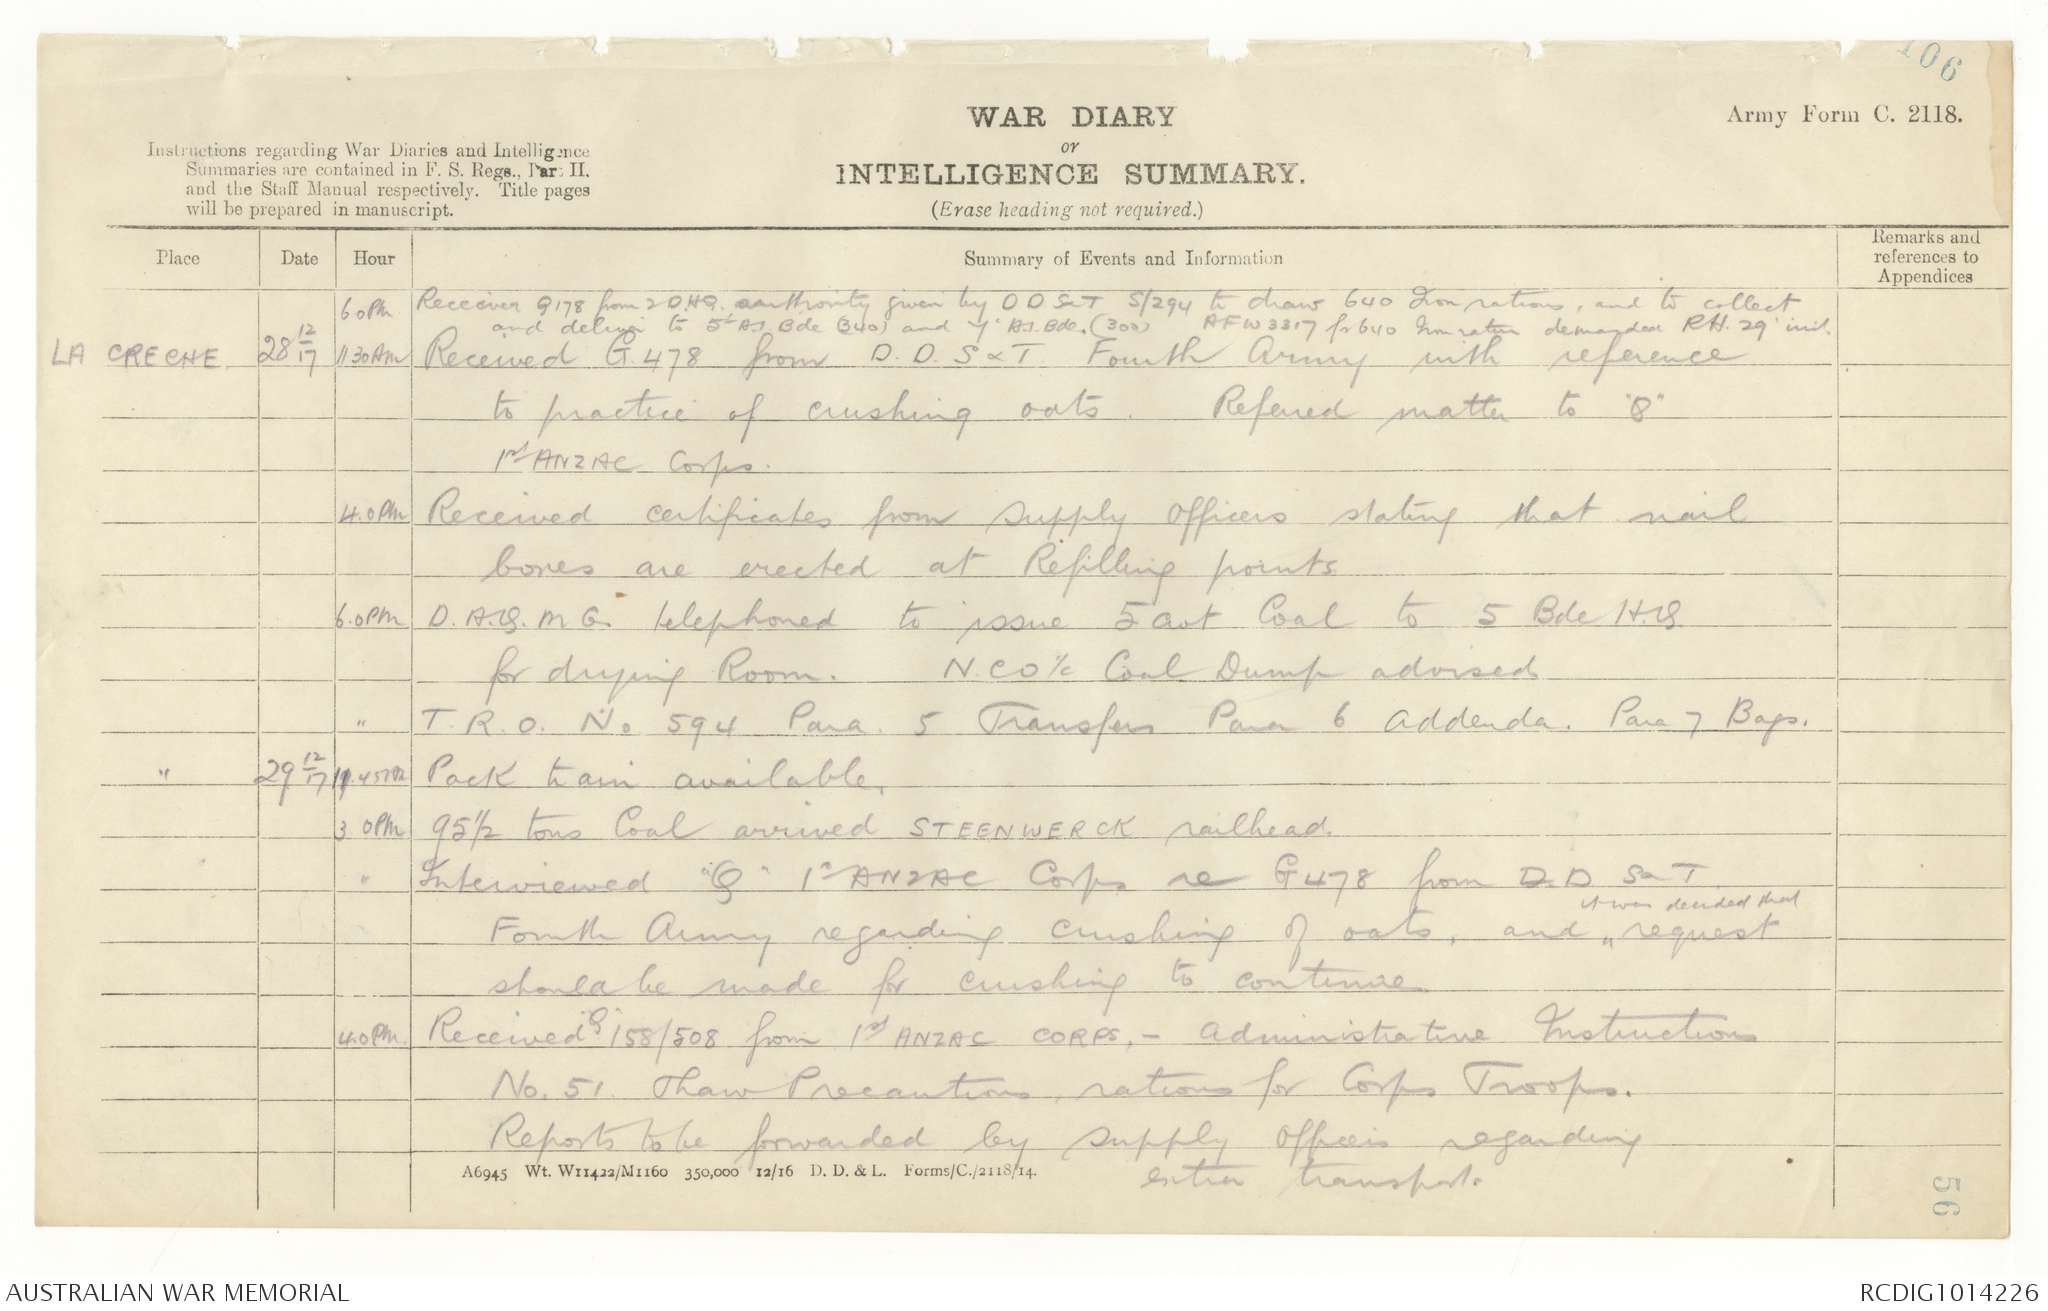 106
WAR DIARY
or
INTELLIGENCE SUMMARY.
(Erase heading not required.)
Army Form C. 2118.
Instructions regarding War Diaries and Intelligence
Summaries are contained in F. S. Regs., Part II.
and the Staff Manual respectively. Title pages
will be prepared in manuscript.
Place Date Hour Summary of Events and Information Remarks and references to Appendices
6.0PM Receiver Q178 from 2 D.H.Q. authority given by D D S&T S/294 to draw 640 Iron rations, and to collect
and deliver to 5th A.I. Bde (340) and 7th A.I. Bde. (300) AFW3317 for 640 Iron ration demanded R.H. 29th inst.
LA CRECHE 28 12/17 11.30AM Received G.478 from D. D. S & T Fourth Army with reference
to practice of crushing oats. Referred matter to "Q"
1st ANZAC Corps.
4.0PM Received certificates from Supply Officers stating that mail
boxes are erected at Refilling points
6.0PM D.A.Q.M.G. telephoned to issue 5 cwt Coal to 5 Bde H.Q.
for drying Room. N.C.O i/c Coal Dump advised
" T.R.O. No 594 Para. 5 Transfers Para 6 Addenda. Para 7 Bags.
" 29 12/17 Pack train available.
3 0PM 95½ tons Coal arrived STEENWERCK railhead.
" Interviewed "Q" 1st ANZAC Corps re G478 from D.D S&T
it was decided that
Fourth Army regarding crushing of oats, and " request
should be made for crushing to continue
4.0PM. Received "Q" 158/508 from 1st ANZAC CORPS, - Administrative Instructions
No. 51. Thaw Precautions, rations for Corps Troops.
Reports to be forwarded by Supply Officers regarding
extra transport.
A6945 Wt. W11422/M1160 350,000 12/16 D. D. & L. Forms/C./2118/14.
56
AUSTRALIAN WAR MEMORIAL
RCDIG1014226